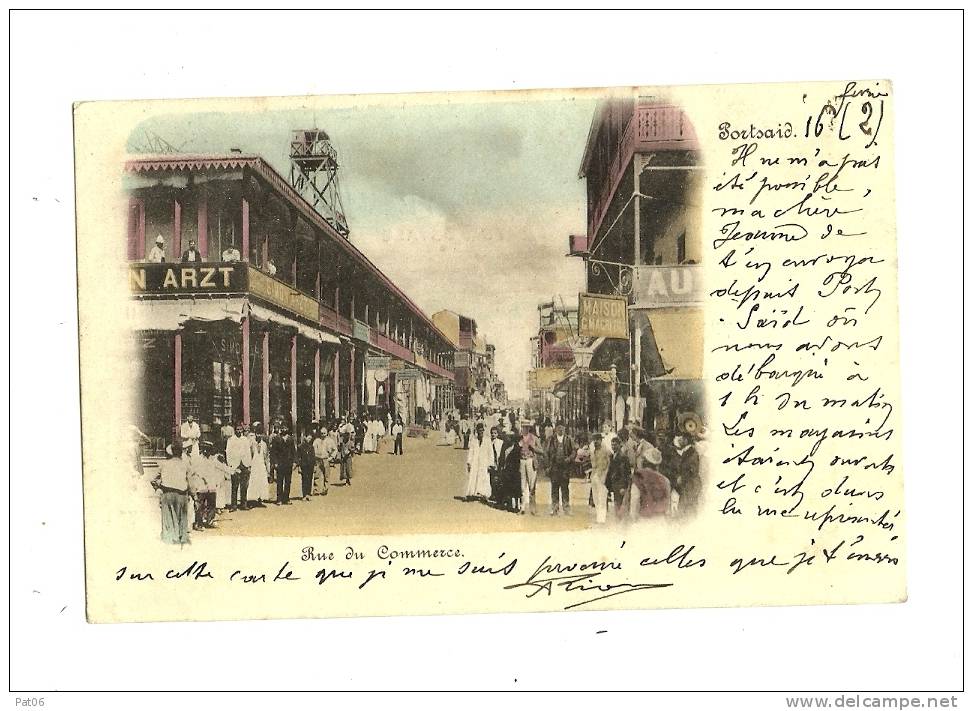 Portsaid. 16 février (2)
Il ne m'a pas
été possible,
ma chère
Jeanne de
t'en envoyer
depuis Port
-Saïd où
nous avons
débarqué à
1 h du matin
Les magasins
étaient ouverts
et c'est dans
la rue représentée
sur cette carte que je me suis procuré celles que je t'envoie
N ARZT
MAISON
AU
Rue du Commerce.
Pat06
www.delcampe.net